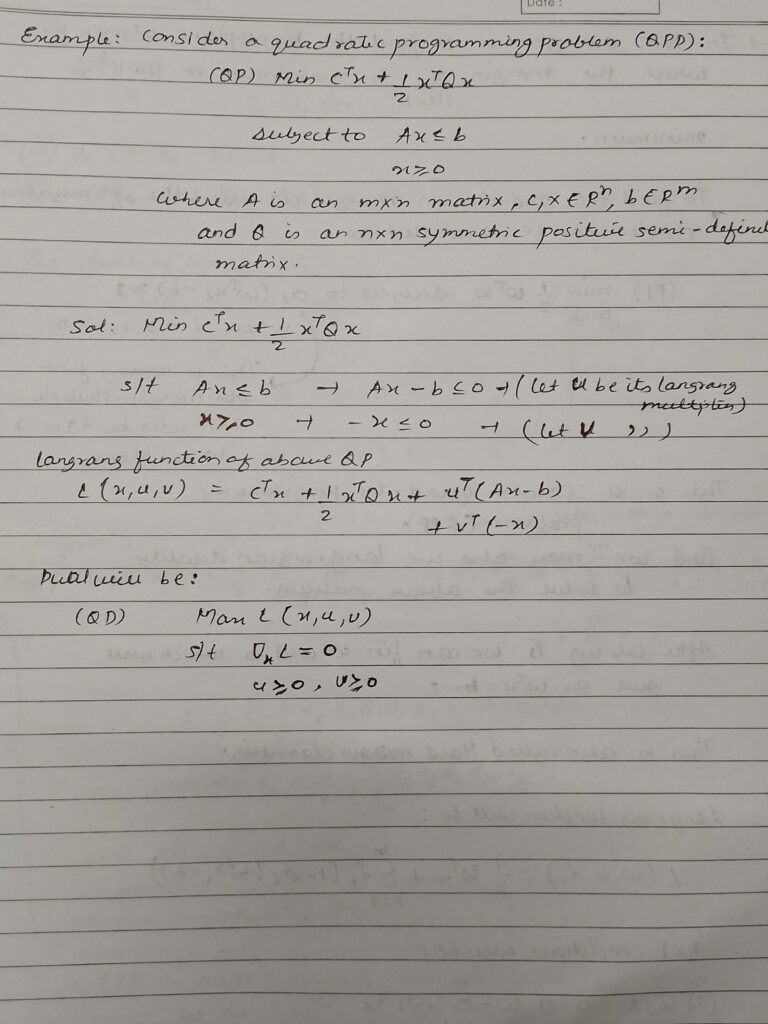 Date :
Example: Consider a quadratic programming problem (QPP):
(QP) Min cᵀx + 1/2 xᵀQx
subject to Ax ≤ b
x ≥ 0
where A is an mxn matrix, c, x ∈ Rⁿ, b ∈ Rᵐ
and Q is an nxn symmetric positive semi-definit
matrix.
Sol: Min cᵀx + 1/2 xᵀQx
s/t Ax ≤ b → Ax - b ≤ 0 → (let u be its langrang
multiplier)
x ≥ 0 → -x ≤ 0 → (let v ,, )
langrang function of above QP
L (x,u,v) = cᵀx + 1/2 xᵀQx + uᵀ(Ax-b)
+ vᵀ(-x)
Dual will be:
(QD) Max L (x,u,v)
s/t ∇ₓL = 0
u ≥ 0, v ≥ 0